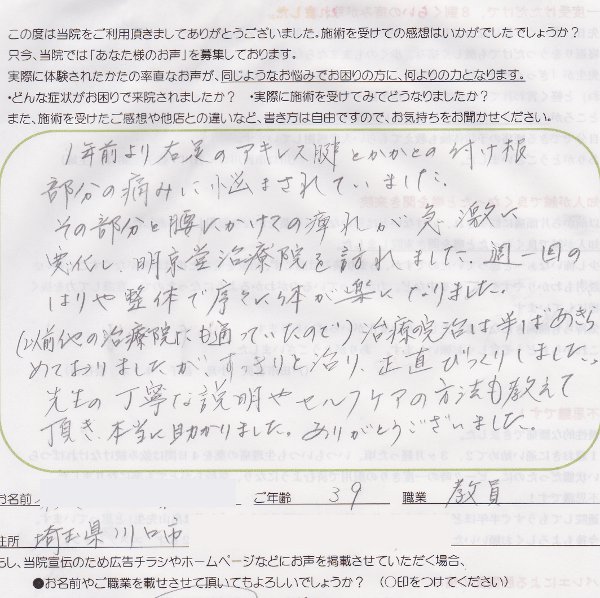 この度は当院をご利用頂きましてありがとうございました。施術を受けての感想はいかがでしたでしょうか?
只今、当院では「あなた様のお声」を募集しております。
実際に体験されたかたの率直なお声が、同じようなお悩みでお困りの方に、何よりの力となります。
・どんな症状がお困りで来院されましたか? ・実際に施術を受けてみてどうなりましたか?
また、施術を受けたご感想や他店との違いなど、書き方は自由ですので、お気持ちをお聞かせください。
1年前より右足のアキレス腱とかかとの付け根
部分の痛みに悩まされていました。
その部分と腰にかけての痺れが急激に
変化し、明京堂治療院を訪れました。週一回の
はりや整体で序々に体が楽になりました。
(以前他の治療院にも通っていたので)治療院治は半ばあきら
めておりましたが すっきりと治り、正直びっくりしました。
先生の丁寧な説明やセルフケアの方法も教えて
頂き、本当に助かりました。ありがとうございました。
お名前 ご年齢 39 職業 教員
住所 埼玉県川口市
もし、当院宣伝のため広告チラシやホームページなどにお声を掲載させていただく場合、
●お名前やご職業を載せさせて頂いてもよろしいでしょうか? (〇印をつけてください)